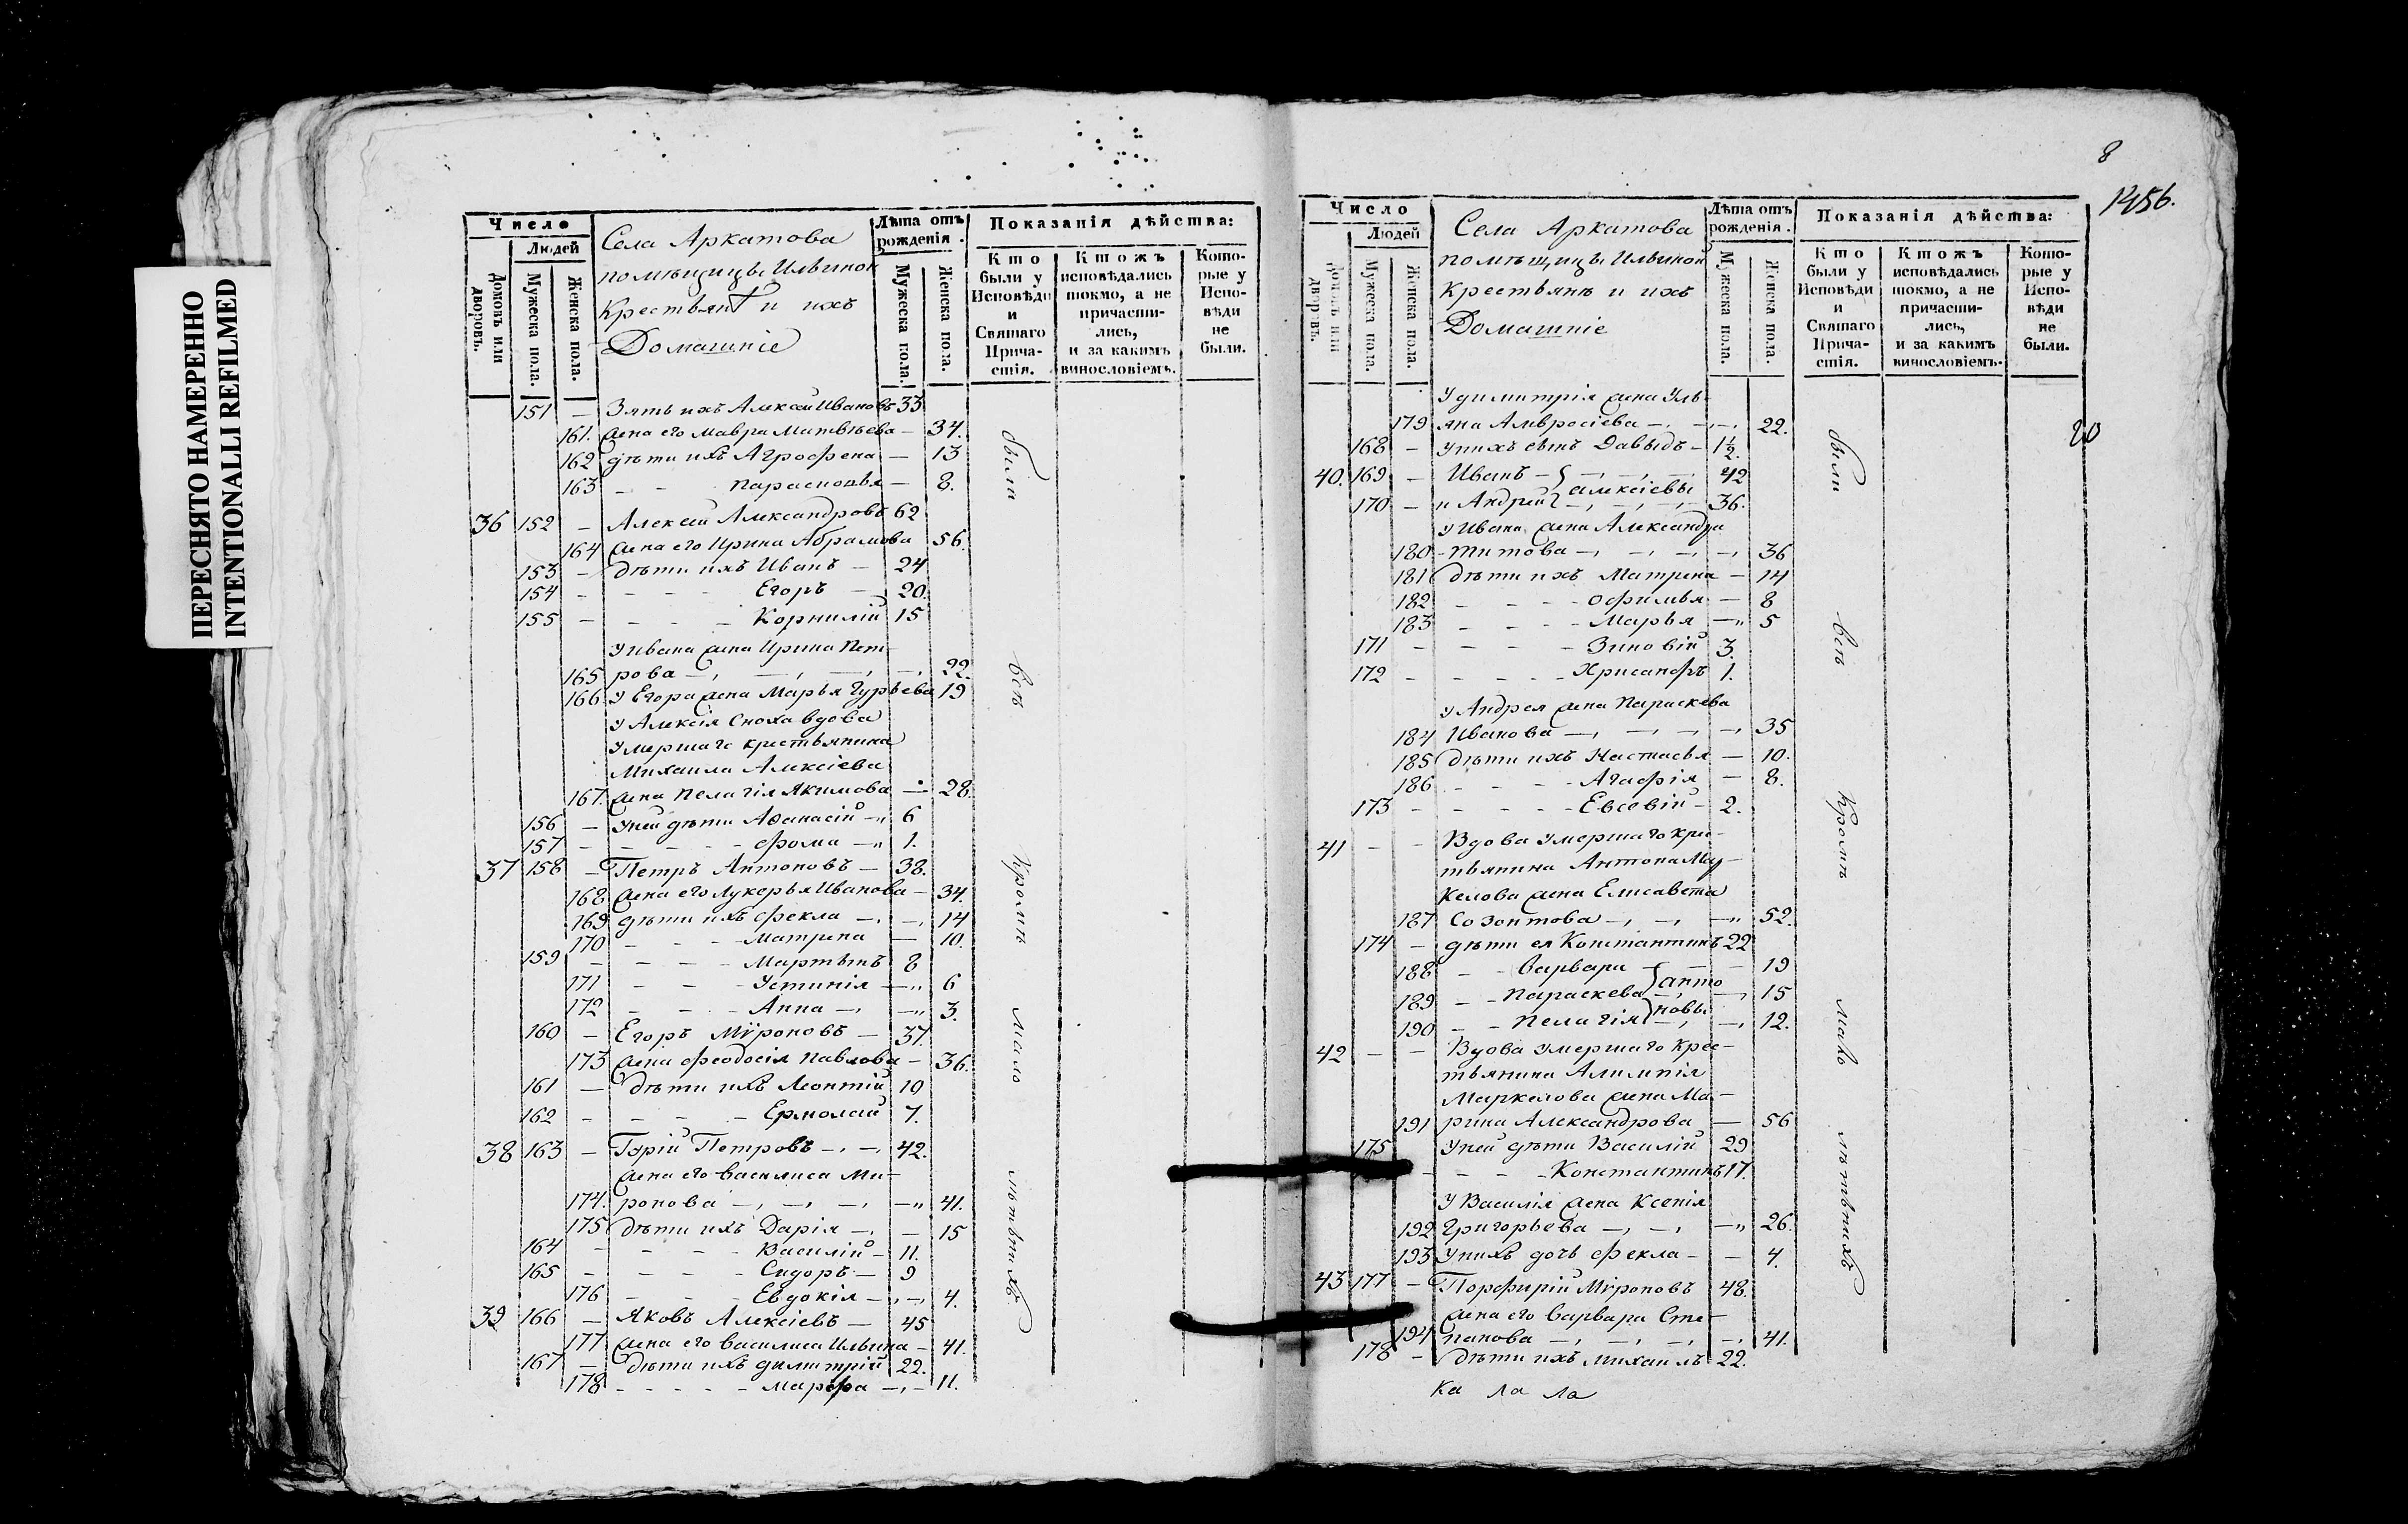 ПЕРЕСНЯТО НАМЕРЕННО
INTENTIONALLI REFILMED
Число
Людей
Домовъ или дворовъ.
Мужеска пола.
Женска пола.
Села Аркатова
помѣщицы Ильинок
Крестьянъ и ихъ
Домашніе
Лѣта отъ рожденія.
Мужеска пола.
Женска пола.
Показанія дѣйства:
Кто были у Исповѣди и Святаго Причастія.
Ктожъ исповѣдались токмо, а не причастились, и за какимъ винословіемъ.
Которые у Исповѣди не были.
151 — Зять ихъ Алексей Ивановъ 33
161. жена его Мавра Матвѣева — 34.
162 дѣти ихъ Агрофена — 13
163 — — Парасковья — 8.
36 152 — Алексей Александровъ 62
164 жена его Ирина Абрамова 56.
153 — дѣти ихъ Иванъ — 24
154 — — — — Егоръ — 20.
155 — — — — Корнилій 15
У Ивана жена Ирина Пет-
165 рова —, —, —, —, 22.
166 У Егора жена Марья Гурьева 19
У Алексія Сноха вдова
Умершаго крестьянина
Михаила Алексіева
167. жена Пелагія Якимова — 28.
156 — У ней дѣти Аѳанасій —„ 6
157 — — — — Фома —„ 1.
37 158 — Петръ Антоновъ — 38.
168 жена его Лукерья Иванова — 34.
169 дѣти ихъ Фекла —, —, 14
170 — — — Матрена — 10.
159 — — — — Мартынъ 8
171 — — — Устинія —„ 6
172 — — — Анна —, —„ 3.
160 — Егоръ Мѵроновъ — 37.
173 жена Феодосія Павлова — 36.
161 — дѣти ихъ Леонтій 10
162 — — — — Ермолай 7.
38 163 — Гурій Петровъ —, —, 42.
жена его Василиса Ми-
174. ронова —, —, —, —„ 41.
175 дѣти ихъ Дарія —, — 15
164 — — — — Василій — 11.
165 — — — — Сидоръ — 9
176 — — — Евдокія —, —, 4.
39 166 — Яковъ Алексіевъ — 45
177 жена его Василиса Ильина — 41.
167 — дѣти ихъ Димитрій 22.
178 — — — — Марфа —, — 11.
были всѣ кромѣ мало лѣтныхъ
8
1456.
20
Число
Людей
Домовъ или дворовъ.
Мужеска пола.
Женска пола.
Села Аркатова
помѣщицы Ильинок
Крестьянъ и ихъ
Домашніе
Лѣта отъ рожденія.
Мужеска пола.
Женска пола.
Показанія дѣйства:
Кто были у Исповѣди и Святаго Причастія.
Ктожъ исповѣдались токмо, а не причастились, и за какимъ винословіемъ.
Которые у Исповѣди не были.
У Димитрія жена Уль-
179 яна Амвросіева —, —, —, 22.
168 — У нихъ сынъ Давыдъ — 1½.
40. 169 — Иванъ — —, —, —, 42
Алексіевы
170 — и Андрей —, —, —, 36.
У Ивана жена Александра
180 Титова —, —, —, —, 36
181 дѣти ихъ Матрена — 14
182 — — — — Офимья — 8
183 — — — — Марья —„ 5
171 — — — — Зиновій 3.
172 — — — — Хрисанфъ 1.
У Андрея жена Параскева
184 Иванова —, —, —, —, 35
185 дѣти ихъ Настасья — 10.
186 — — — Агафія — 8.
173 — — — — Евсевій — 2.
41 — — Вдова Умершаго кре-
тьянина Антона Му-
келова жена Елисавета
187 Созонтова —, —, —„ 52.
174 — дѣти ея Константинъ 22
188 — — Варвара — — 19
Анто
189 — — Параскева —, —, 15
новы
190 — — Пелагія —, —, 12.
42 — — Вдова Умершаго крес-
тьянина Алимпія
Маркелова жена Ма-
191 рина Александрова — 56
175 У ней дѣти Василій 29
— — — — Константинъ 17.
У Василія жена Ксенія
192 Григорьева —, —, —„ 26.
193 У нихъ дочь Фекла — — 4.
43 177 — Порфирій Мѵроновъ 48.
жена его Варвара Сте-
194 панова —, —, —, —, 41.
178 — дѣти ихъ Михаилъ 22.
ка ла ла
были всѣ кромѣ мало лѣтныхъ